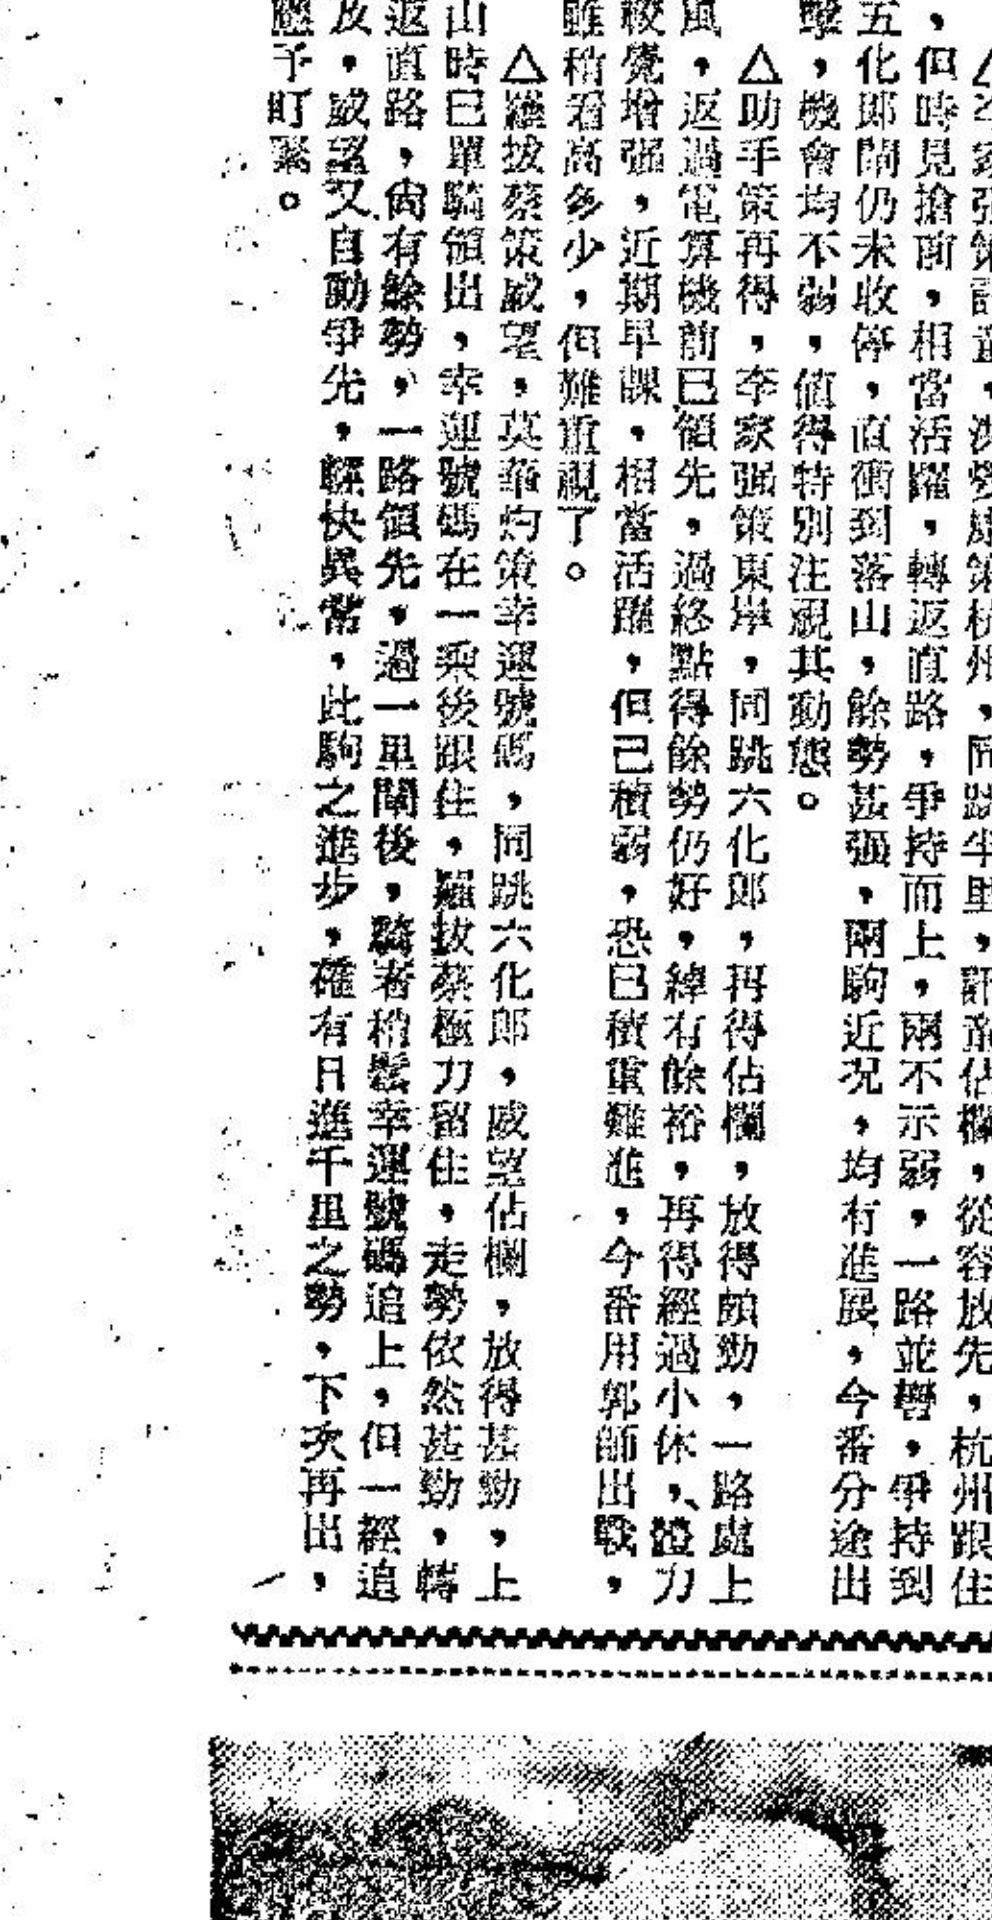 △李家强策許
，但時見搶前，相當活躍，轉返直路，爭持而上，兩不示弱，一路並轡，爭持到
五化郎閘仍未收停，直衝到落山，餘勢甚强，兩駒近況，均有進展，今番分途出
擊，機會均不弱，值得特別注視其動態。
△助手策再得，李家强策東岸，同跳六化郎，再得佔欄，放得頗勁，一路處上
風，返過電算機前已領先，過終點得餘勢仍好，綽有餘裕，再得經過小休，體力
較覺增强，近期早課，相當活躍，但已積弱，恐已積重難進，今番用郭師出戰，
雖稍看高多少，但難重視了。
△羅拔蔡策威望，英華灼策幸運號碼，同跳六化郎，威望佔欄，放得甚勁，上
山時已單騎領出，幸運號碼在一乘後跟住，羅拔蔡極力留住，走勢依然甚勁，轉
返直路，尚有餘勢，一路領先，過一里閘後，騎者稍鬆幸運號碼追上，但一經追
及，威望又自動爭先，輕快異常，此駒之進步，確有日進千里之勢，下次再出，
應予盯緊。